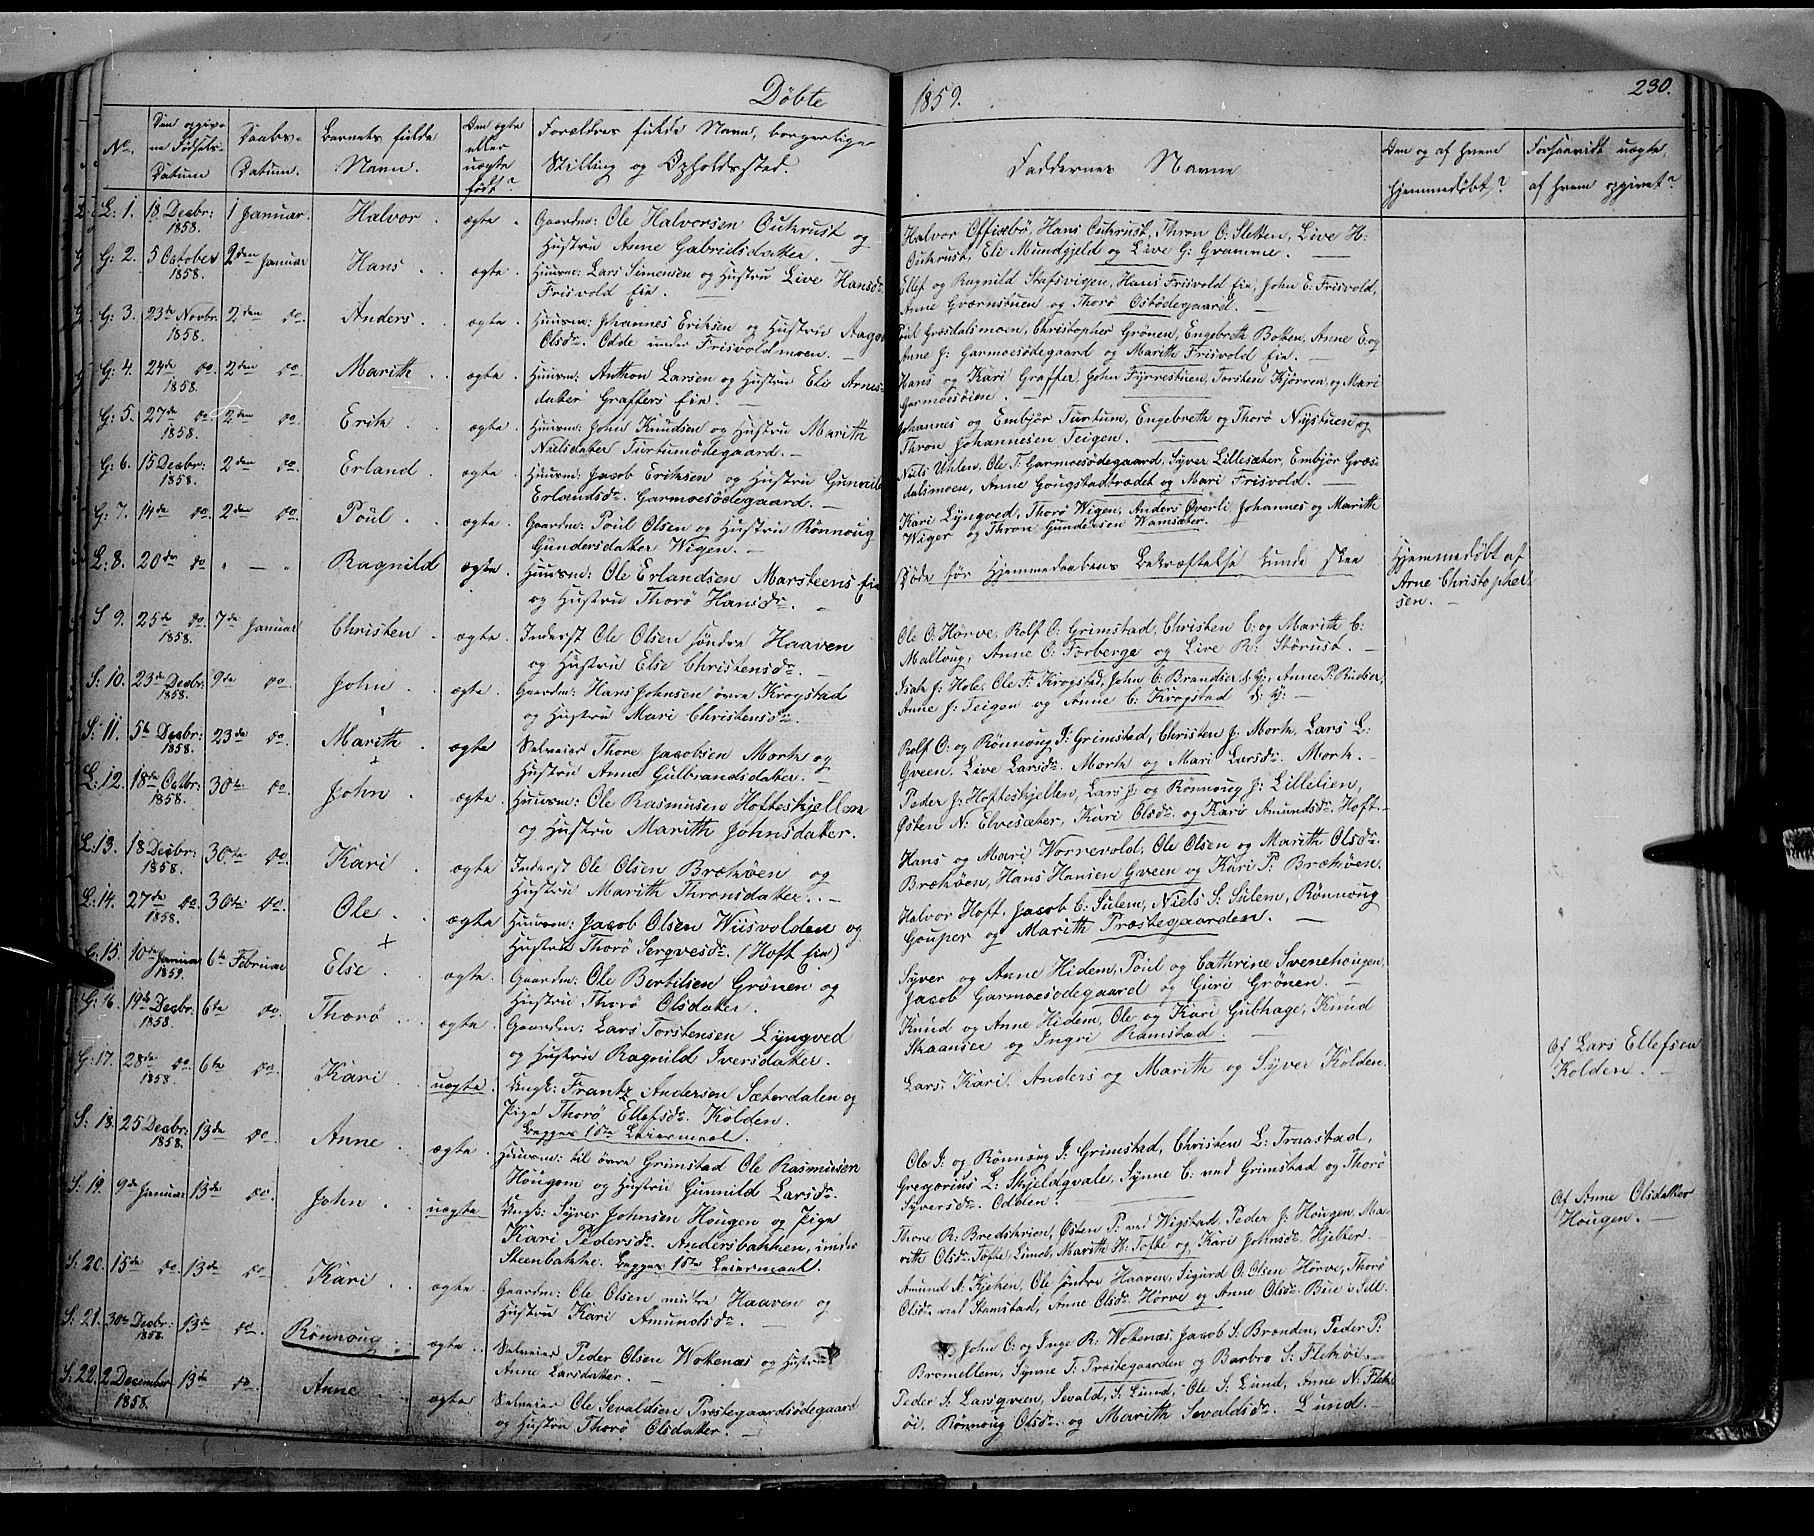 Döbte 1859. 230.
No. Den opgivne Fødsels-Datum Daabs-Datum. Barnets fulde Navn. Om ægte eller uægte født? Forældres fulde Navn, borgerlige Stilling og Opholdssted. Faddernes Navne Om og af hvem hjemmedøbt? Forsaavidt uægte, af hvem opgivet?
L: 1. 18 Decbr: 1858. 1 Januar. Halvor. ægte. Gaardm: Ole Halvorsen Outhrust og Hustru Anne Gabrielsdatter. Halvor Offisbö, Hans Outhrust, Thron O: Sletten, Live H:
Outhrust, Eli Mundgjeld og Live G: Gramme.
G: 2. 5 October 1858. 2den Januar Hans. ægte. Huusm: Lars Simensen og Hustru Live Hansdr. Frisvold Eie. Ellef og Ragnild Stafsvigen, Hans Frisvold Eie, John E. Frisvold,
Anne Qværnstuen og Thorö Ostödegaard.
G: 3. 23de Novbr. 1858. 2den do. Anders. ægte. Huusm: Johannes Eriksen og Hustru Aagot Olsdr. Odde under Frisvoldmoen. Poul Græsdalsmoen, Christopher Grönen, Engebreth Botten, Anne E. og
Anne J: Garmoesödegaard og Marith Frisvold Eie.
G: 4. 24de do. 1858. 2den do. Marith. ægte. Huusm: Anthon Larsen og Hustru Eli Arnesdatter Graffers Eie. Hans og Kari Graffer, John Fyrrestuen, Torsten Kjörren, og Mari
Garmoesöien.
G: 5. 27de do. 1858. 2den do. Erik. ægte. Huusm: John Knudsen og Hustru Marith Nielsdatter Turtumödegaard. Johannes og Embjör Turtum, Engebreth og Thorö Nystuen og
Thron Johannesen Teigen.
G: 6. 15 Decbr: 1858. 2den do. Erland. ægte. Huusm: Jacob Eriksen og Hustru Gunnild Erlandsdr. Garmoesödegaard. Niels Uhlen, Ole T: Garmoesödegaard, Syver Lillesæter, Embjör Græsdalsmoen,
Anne Gougstadbrædet og Mari Frisvold.
G: 7. 14de do. 2den do. Poul. ægte. Gaardm: Poul Olsen og Hustru Rönnoug Gundersdatter Wigen. Kari Lyngved, Thorö Wigen, Anders Överli, Johannes og Marith
Wiger og Thron Gundersen Wamsæter.
L: 8. 20de do. " — " Ragnild ægte. Huusm: Ole Erlandsen Marsteens Eie og Hustru Thorö Hansdr. Döde før Hjemmedaabens Bekræftelse kunde skee Hjemmedøbt af Arne Christophersen.
S 9. 25de do. 1858. 7de Januar Christen. ægte. Inderst Ole Olsen söndre Haaven og Hustru Else Christensdr. Ole O: Hörve, Rolf O: Grimstad, Christen C: og Marith C:
Malloug, Anne O: Forberge og Live R: Störust.
S. 10. 23de Decbr: 1858. 9de do. John. ægte. Gaardm: Hans Johnsen övre Krogstad og Hustru Mari Christensdr. Isak J: Hole, Ole F: Krogstad, John C: Brandser, Anne P: Rudser,
Anne J: Teigen og Anne C: Krogstad
S: 11. 5te Decbr: 1858. 23de do. Marith. ægte. Selveier Thore Jacobsen Mork og Hustru Anne Gulbrandsdatter. Rolf O: og Rönnoug J: Grimstad, Christen J: Mork, Lars L:
Gveen, Live Larsdr. Mork og Mari Larsdr. Mork.
L: 12. 18de Octbr. 1858. 30te do. John. ægte. Huusm: Ole Rasmusen Hofteskjellen og Hustru Marith Johnsdatter. Peder J: Hofteskjellen, Lars J: og Rönnoug J: Lillelien,
Östen N: Elvesæter, Kari Olsdr. og Kari Amundsdr. Hoft.
L: 13. 18 Decbr: 1858. 30te do. Kari ægte. Inderst Ole Olsen Bræhöen og Hustru Marith Thronsdatter. Hans og Mari Vorrevold, Ole Olsen og Marith Olsdr.
Bræhöen, Hans Hansen Gveen og Kari P: Bræhöen.
L: 14. 27de do. 1858. 30te do. Ole. ægte Huusm: Jacob Olsen Wiisvolden og Hustru Thorö Serqvesdr. (Hoft Eie) Halvor Hoft, Jacob C: Sulem, Niels S: Sulem, Rönnoug
Gouper og Marith Præstegaarden.
G: 15. 10de Januar 1859. 6te Februar Else. ægte. Gaardm: Ole Bertilsen Grönen og Hustru Thorö Olsdatter. Syver og Anne Hidem, Poul og Cathrine Svenehougen,
Jacob Garmoesödegaard og Guri Grönen.
G: 16. 19de Decbr: 1858. 6te do. Thorö ægte. Gaardm: Lars Torstensen Lyngved og Hustru Ragnild Iversdatter. Knud og Anne Hidem, Ole og Kari Gubhage, Knud
Skaansee og Ingri Ramstad.
G: 17. 28de do. 1858. 6te do. Kari uægte. Ungk: Frantz Andersen Sæterdalen og Pige Thorö Ellefsdr. Kolden. Begges 1ste Leiermaal. Lars, Kari, Anders og Marith og Syver Kolden. Af Lars Ellefsen Kolden.
S: 18. 25 Decbr: 1858. 13de do. Anne ægte. Huusm: til övre Grimstad Ole Rasmusen Hougom og Hustru Gunnild Larsdr. Ole J: og Rönnoug J: Grimstad, Christen L: Traastad,
Gregorius L: Skjeldqvale, Synne C: ved Grimstad og Thorö
Syversdr. Odolen.
S: 19. 9de Januar 13de do. John uægte. Ungk: Syver Johnsen Hougen og Pige Kari Pedersdr. Andersbakken, under Steenbakke. Begges 1ste Leiermaal. Thore R: Bredskrien, Östen P: ved Wigstad, Peder J: Hougen, Marith
Olsdr. Tofte Lund, Marith H: Tofte og Kari Johnsdr. Hjelker. Af Anne Olsdatter Hougen.
S: 20. 15de do. 13de do. Kari ægte. Gaardm: Ole Olsen midtre Haaven og Hustru Kari Amundsdr. Amund A: Kjeken, Ole söndre Haaven, Sigurd O: Olsen Hörve, Thorö
Olsdr. ved Stamstad, Anne Olsdr. Hörve og Anne Olsdr. Bue i Sell.
S: 21. 30te Decbr: 1858. 13de do. Rönnoug. ægte. Selveier Peder Olsen Wottenæs og Hustru Anne Larsdatter. John O: og Inge R: Wottenæs, Jacob S: Branden, Peder P:
Bromellem, Synne T: Præstegaarden og Barbro S: Flekøi.
S: 22. 2 December 1858. 13de do. Anne ægte. Selveier Ole Sevaldsen Præstegaardsödegaard og Hustru Thorö Olsdatter. Peder S: Larsqveen, Sevald S: Lund, Ole S: Lund, Anne N: Flekøi,
Rönnoug Olsdr. og Marith Sevaldsdr. Lund.